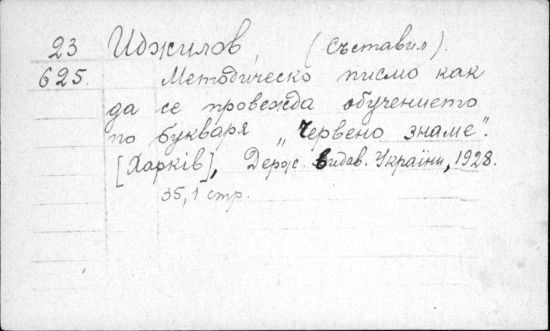 23 Иджилов, (Съставил).
625. Методическо писмо как
да се провежда обучението
по букваря „Червено знаме".
[Харків], Держ. Видав. України, 1928.
35, 1 стр.